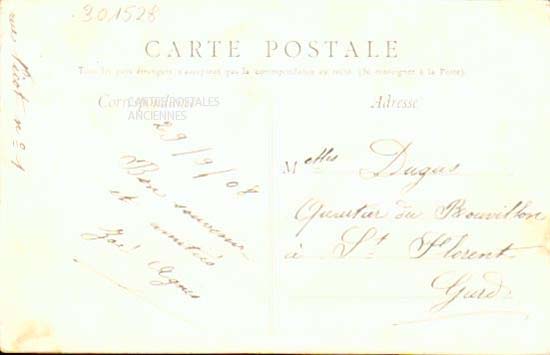 301528
CARTE POSTALE
Tous les pays étrangers n'acceptent pas la correspondance au recto. (Se renseigner à la Poste).
Correspondance
Adresse
CARTES POSTALES
ANCIENNES
rue Nicot no 1
29/9/08
Bon souvenir
et amitiés
Agnès
Melles Dugas
Quartier du
à St Florent
Gard